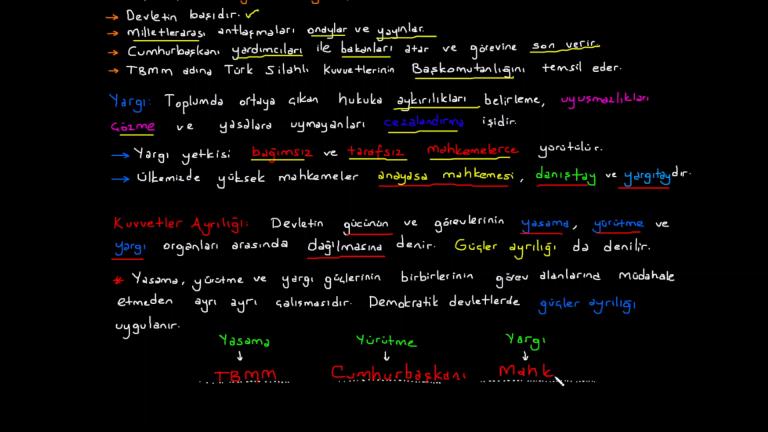 → Devletin başıdır. ✓
→ Milletlerarası antlaşmaları onaylar ve yayınlar.
→ Cumhurbaşkanı yardımcıları ile bakanları atar ve görevine son verir.
→ TBMM adına Türk Silahlı Kuvvetlerinin Başkomutanlığını temsil eder.
Yargı: Toplumda ortaya çıkan hukuka aykırılıkları belirleme, uyuşmazlıkları
çözme ve yasalara uymayanları cezalandırma işidir.
→ Yargı yetkisi bağımsız ve tarafsız mahkemelerce yürütülür.
→ Ülkemizde yüksek mahkemeler anayasa mahkemesi, danıştay ve yargıtaydır.
Kuvvetler Ayrılığı: Devletin gücünün ve görevlerinin yasama, yürütme ve
yargı organları arasında dağılmasına denir. Güçler ayrılığı da denilir.
* Yasama, yürütme ve yargı güçlerinin birbirlerinin görev alanlarına müdahale
etmeden ayrı ayrı çalışmasıdır. Demokratik devletlerde güçler ayrılığı
uygulanır.
Yasama Yürütme Yargı
↓ ↓ ↓
TBMM Cumhurbaşkanı Mahk